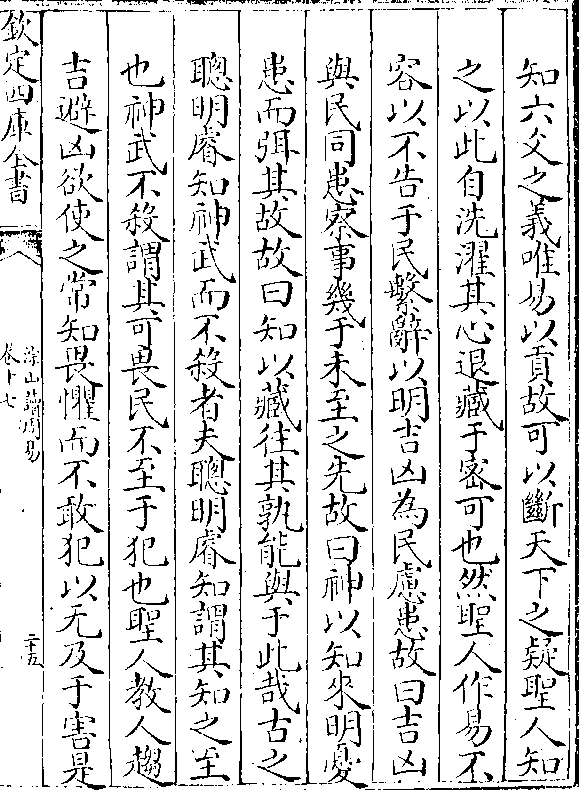 知六爻之義唯易以貢故可以斷天下之疑聖人知
之以此自洗濯其心退藏于密可也然聖人作易不
容以不告于民繫辭以明吉凶為民慮患故曰吉凶
與民同患察事幾于未至之先故曰神以知來明憂
患而弭其故故曰知以藏往其孰能與于此哉古之
聰明睿知神武而不殺者夫聰明睿知謂其知之至
也神武不殺謂其可畏民不至于犯也聖人教人趨
吉避凶欲使之常知畏懼而不敢犯以无及于害是
欽定四庫全書
涂山讀周易
卷十七
二十五